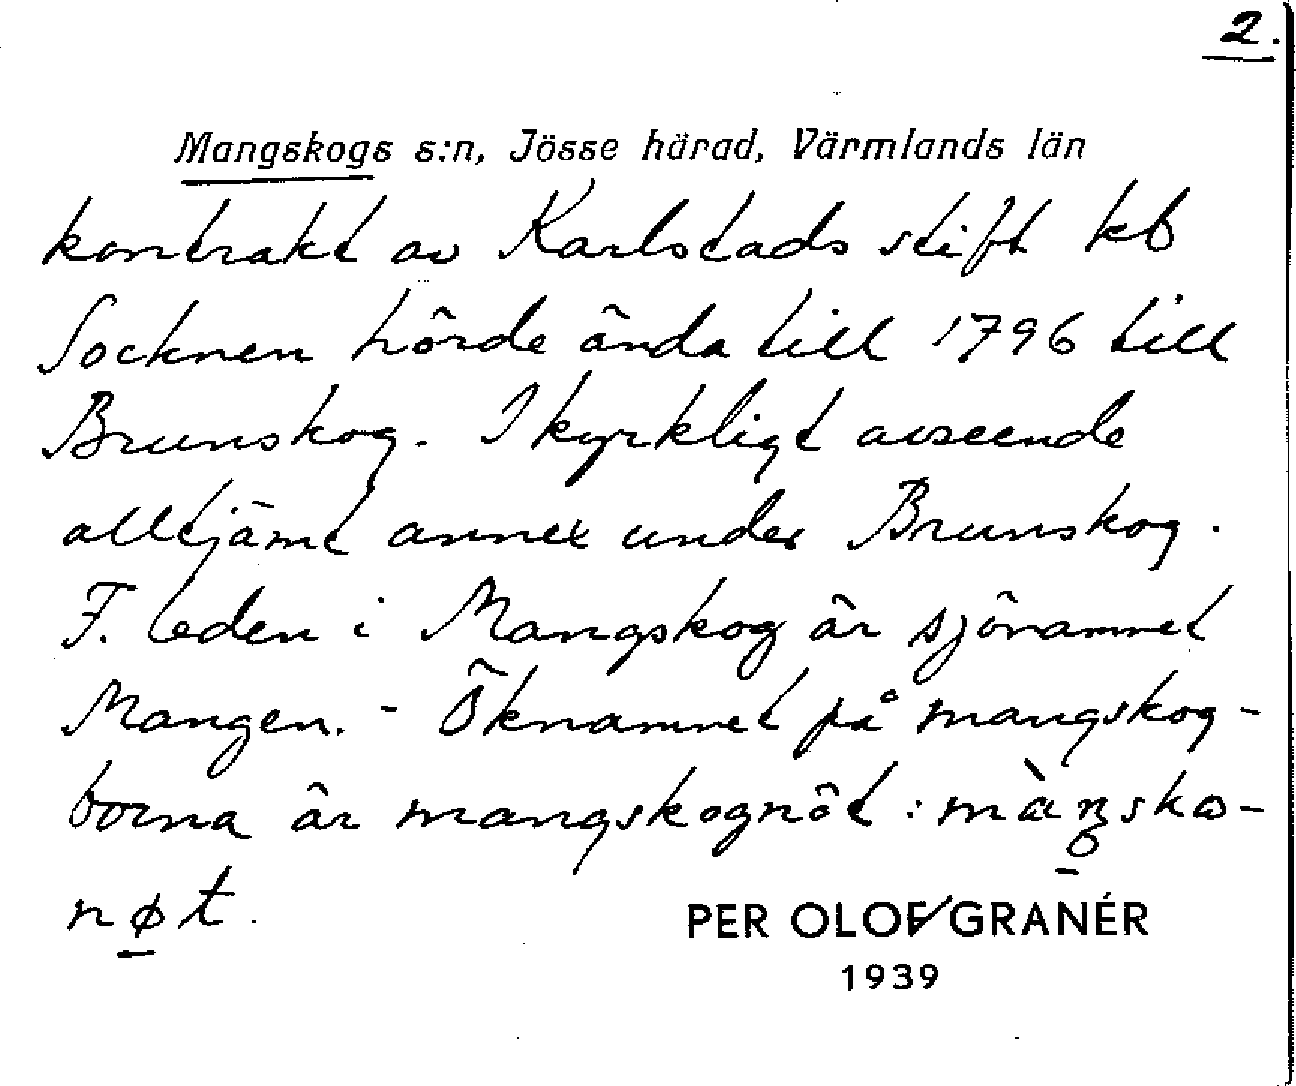 2.
Mangskogs s:n, Jösse härad, Värmlands län
kontrakt av Karlstads stift kb
Socknen hörde ända till 1796 till
Brunskog. I kyrkligt avseende
alltjämt annex under Brunskog.
F. leden i Mangskog är sjönamnet
Mangen. - Öknamnet på mangskog-
borna är mangskognöt: màŋsko-
nøt.
PER OLOF GRANÉR
1939